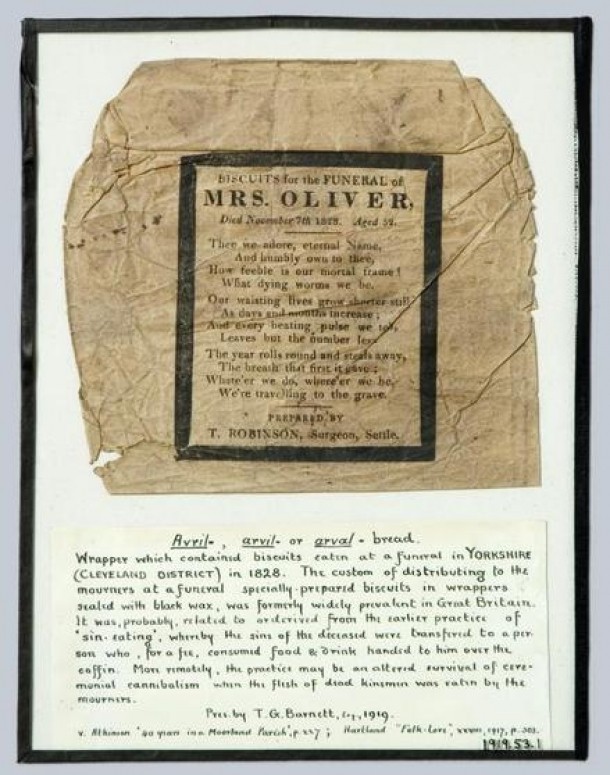 BISCUITS for the FUNERAL of
MRS. OLIVER,
Died November 7th 1828. Aged 52.
Thee we adore, eternal Name,
And humbly own to thee,
How feeble is our mortal frame!
What dying worms we be.
Our waisting lives grow shorter still
As days and months increase;
And every beating pulse we tell,
Leaves but the number less
The year rolls round and steals away,
The breath that first it gave;
Whate'er we do, where'er we be,
We're travelling to the grave.
PREPARED BY
T. ROBINSON, Surgeon, Settle.
Avril-, arvil- or arval-bread.
Wrapper which contained biscuits eaten at a funeral in YORKSHIRE
(CLEVELAND DISTRICT) in 1828. The custom of distributing to the
mourners at a funeral specially-prepared biscuits in wrappers
sealed with black wax, was formerly widely prevalent in Great Britain.
It was, probably, related to or derived from the earlier practice of
"sin-eating", whereby the sins of the deceased were transfered to a per-
son who, for a fee, consumed food & drink handed to him over the
coffin. More remotely, the practice may be an altered survival of cere-
monial cannibalism when the flesh of dead kinsmen was eaten by the
mourners.
Pres. by T. G. Barnett, Esq., 1919.
v. Atkinson "40 years in a Moorland Parish", p. 227; Hartland "Folk-Lore", xxviii, 1917, p. 303.
1919.53.1